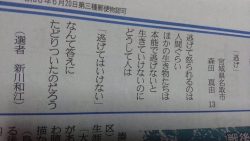 年6月20日第三種郵便物認可
「逃げ」
宮城県名取市
森田 真由 13
逃げて怒られるのは
人間ぐらい
ほかの生き物たちは
本能で逃げないと
生きていけないのに
どうして人は
「逃げてはいけない」
なんて答えに
たどりついたのだろう
(選者 新川和江)